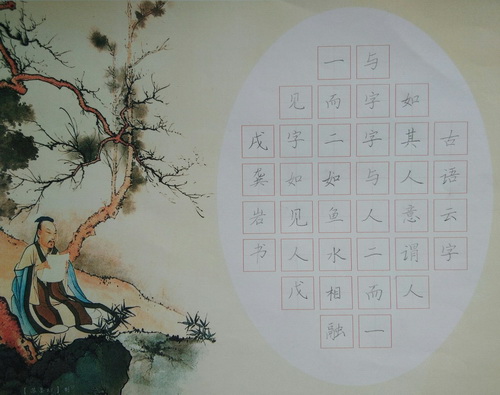 古语云字
如其人意谓人
与字字与人二而一
一而二如鱼水相融
见字如见人戊
戌龚岩书